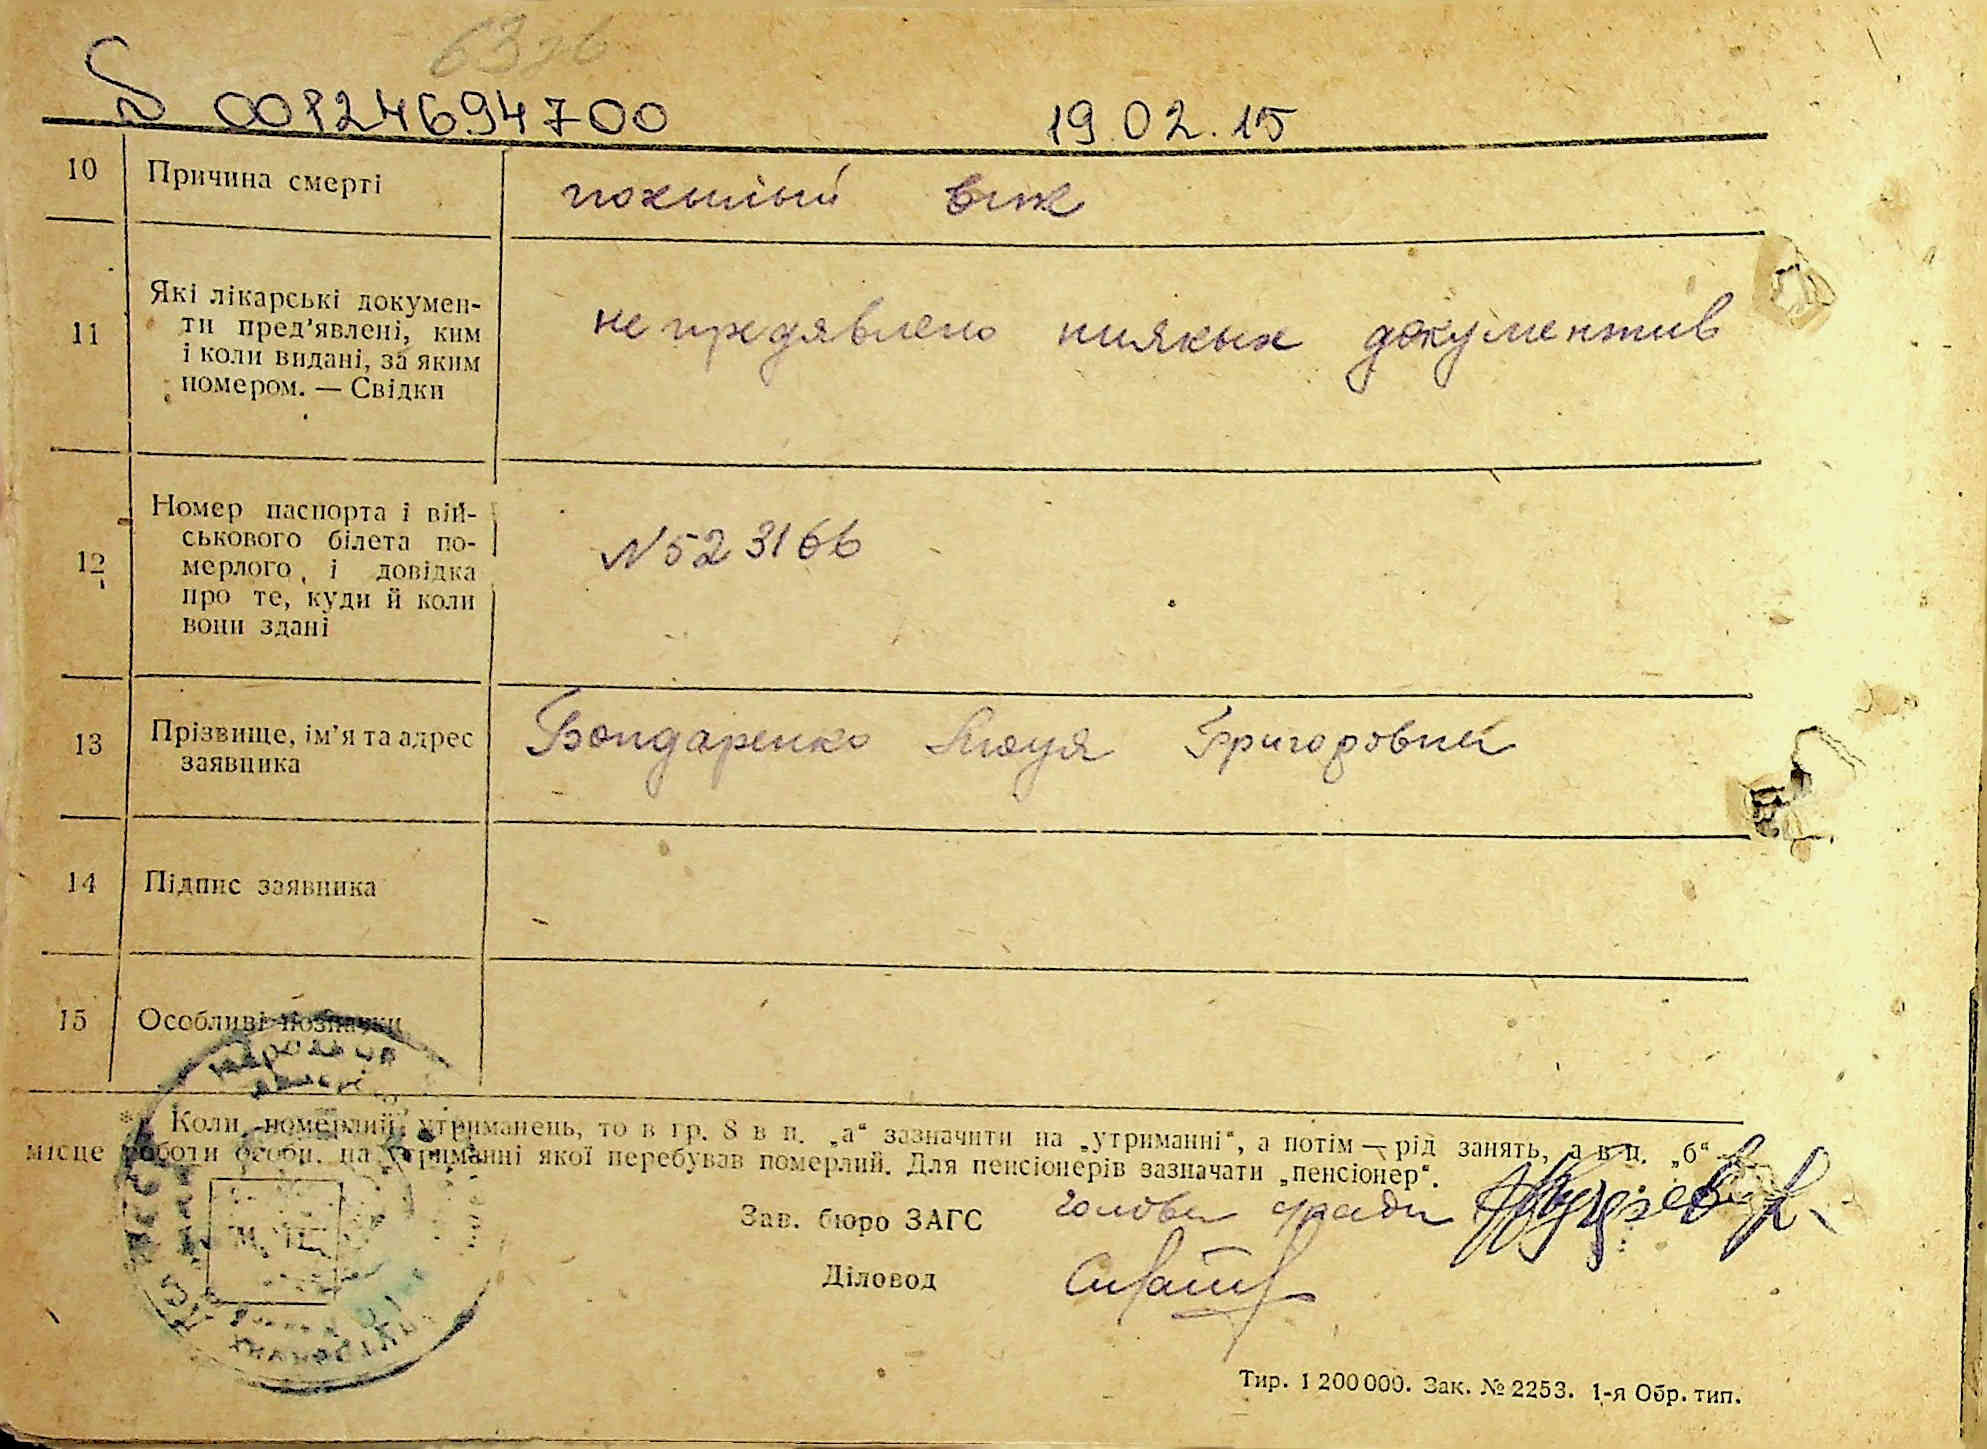 00124694700 19.02.15
10 Причина смерті похилый вик
11 Які лікарські докумен-
ти пред’явлені, ким
і коли видані, за яким
номером. — Свідки
не предявлено ниякых документив
12 Номер паспорта і вій-
ськового білета по-
мерлого і довідка
про те, куди й коли
вони здані
N 523166
13 Прізвище, ім’я та адрес
заявника
Бондаренко Григоровна
14 Підпис заявника
15 Особливі позначки
*) Коли померлий утриманець, то в гр. 8 в п. „а“ зазначити на „утриманні“, а потім — рід занять, а в п. „б“ —
місце роботи особи, на утриманні якої перебував померлий. Для пенсіонерів зазначати „пенсіонер“.
Зав. бюро ЗАГС голова сради
Діловод
Тир. 1 200 000. Зак. № 2253. 1-я Обр. тип.